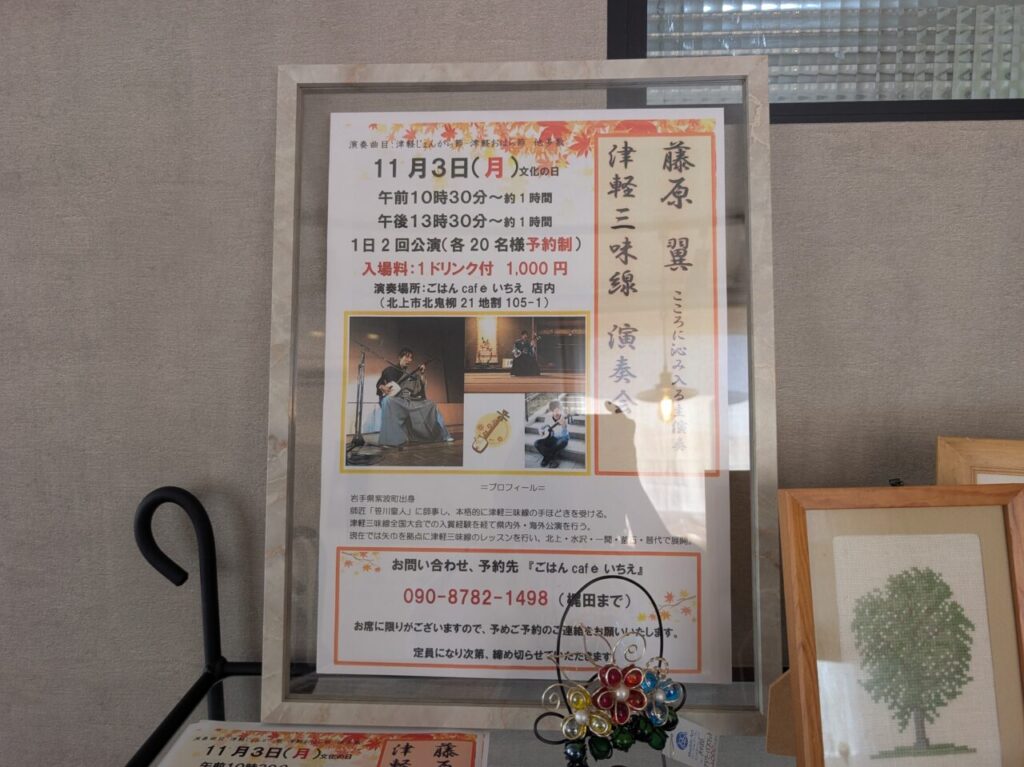 藤原 翼 こころに沁み入る生演奏
津軽三味線 演奏会
演奏曲目:津軽じょんから節 津軽おはら節 他多数
11月3日(月)文化の日
午前10時30分～約1時間
午後13時30分～約1時間
1日2回公演(各20名様予約制)
入場料:1ドリンク付 1,000円
演奏場所:ごはん cafe いちえ 店内
(北上市北鬼柳21地割105-1)
=プロフィール=
岩手県紫波町出身
師匠「笹川皇人」に師事し、本格的に津軽三味線の手ほどきを受ける。
津軽三味線全国大会での入賞経験を経て県内外・海外公演を行う。
現在では矢巾を拠点に津軽三味線のレッスンを行い、北上・水沢・一関・普代で展開。
お問い合わせ、予約先 『ごはん cafe いちえ』
090-8782-1498 (梶田まで)
お席に限りがございますので、予めご予約のご連絡をお願いいたします。
定員になり次第、締め切らせていただきます
11月3日(月)文化の日
午前10時30
藤原
津軽